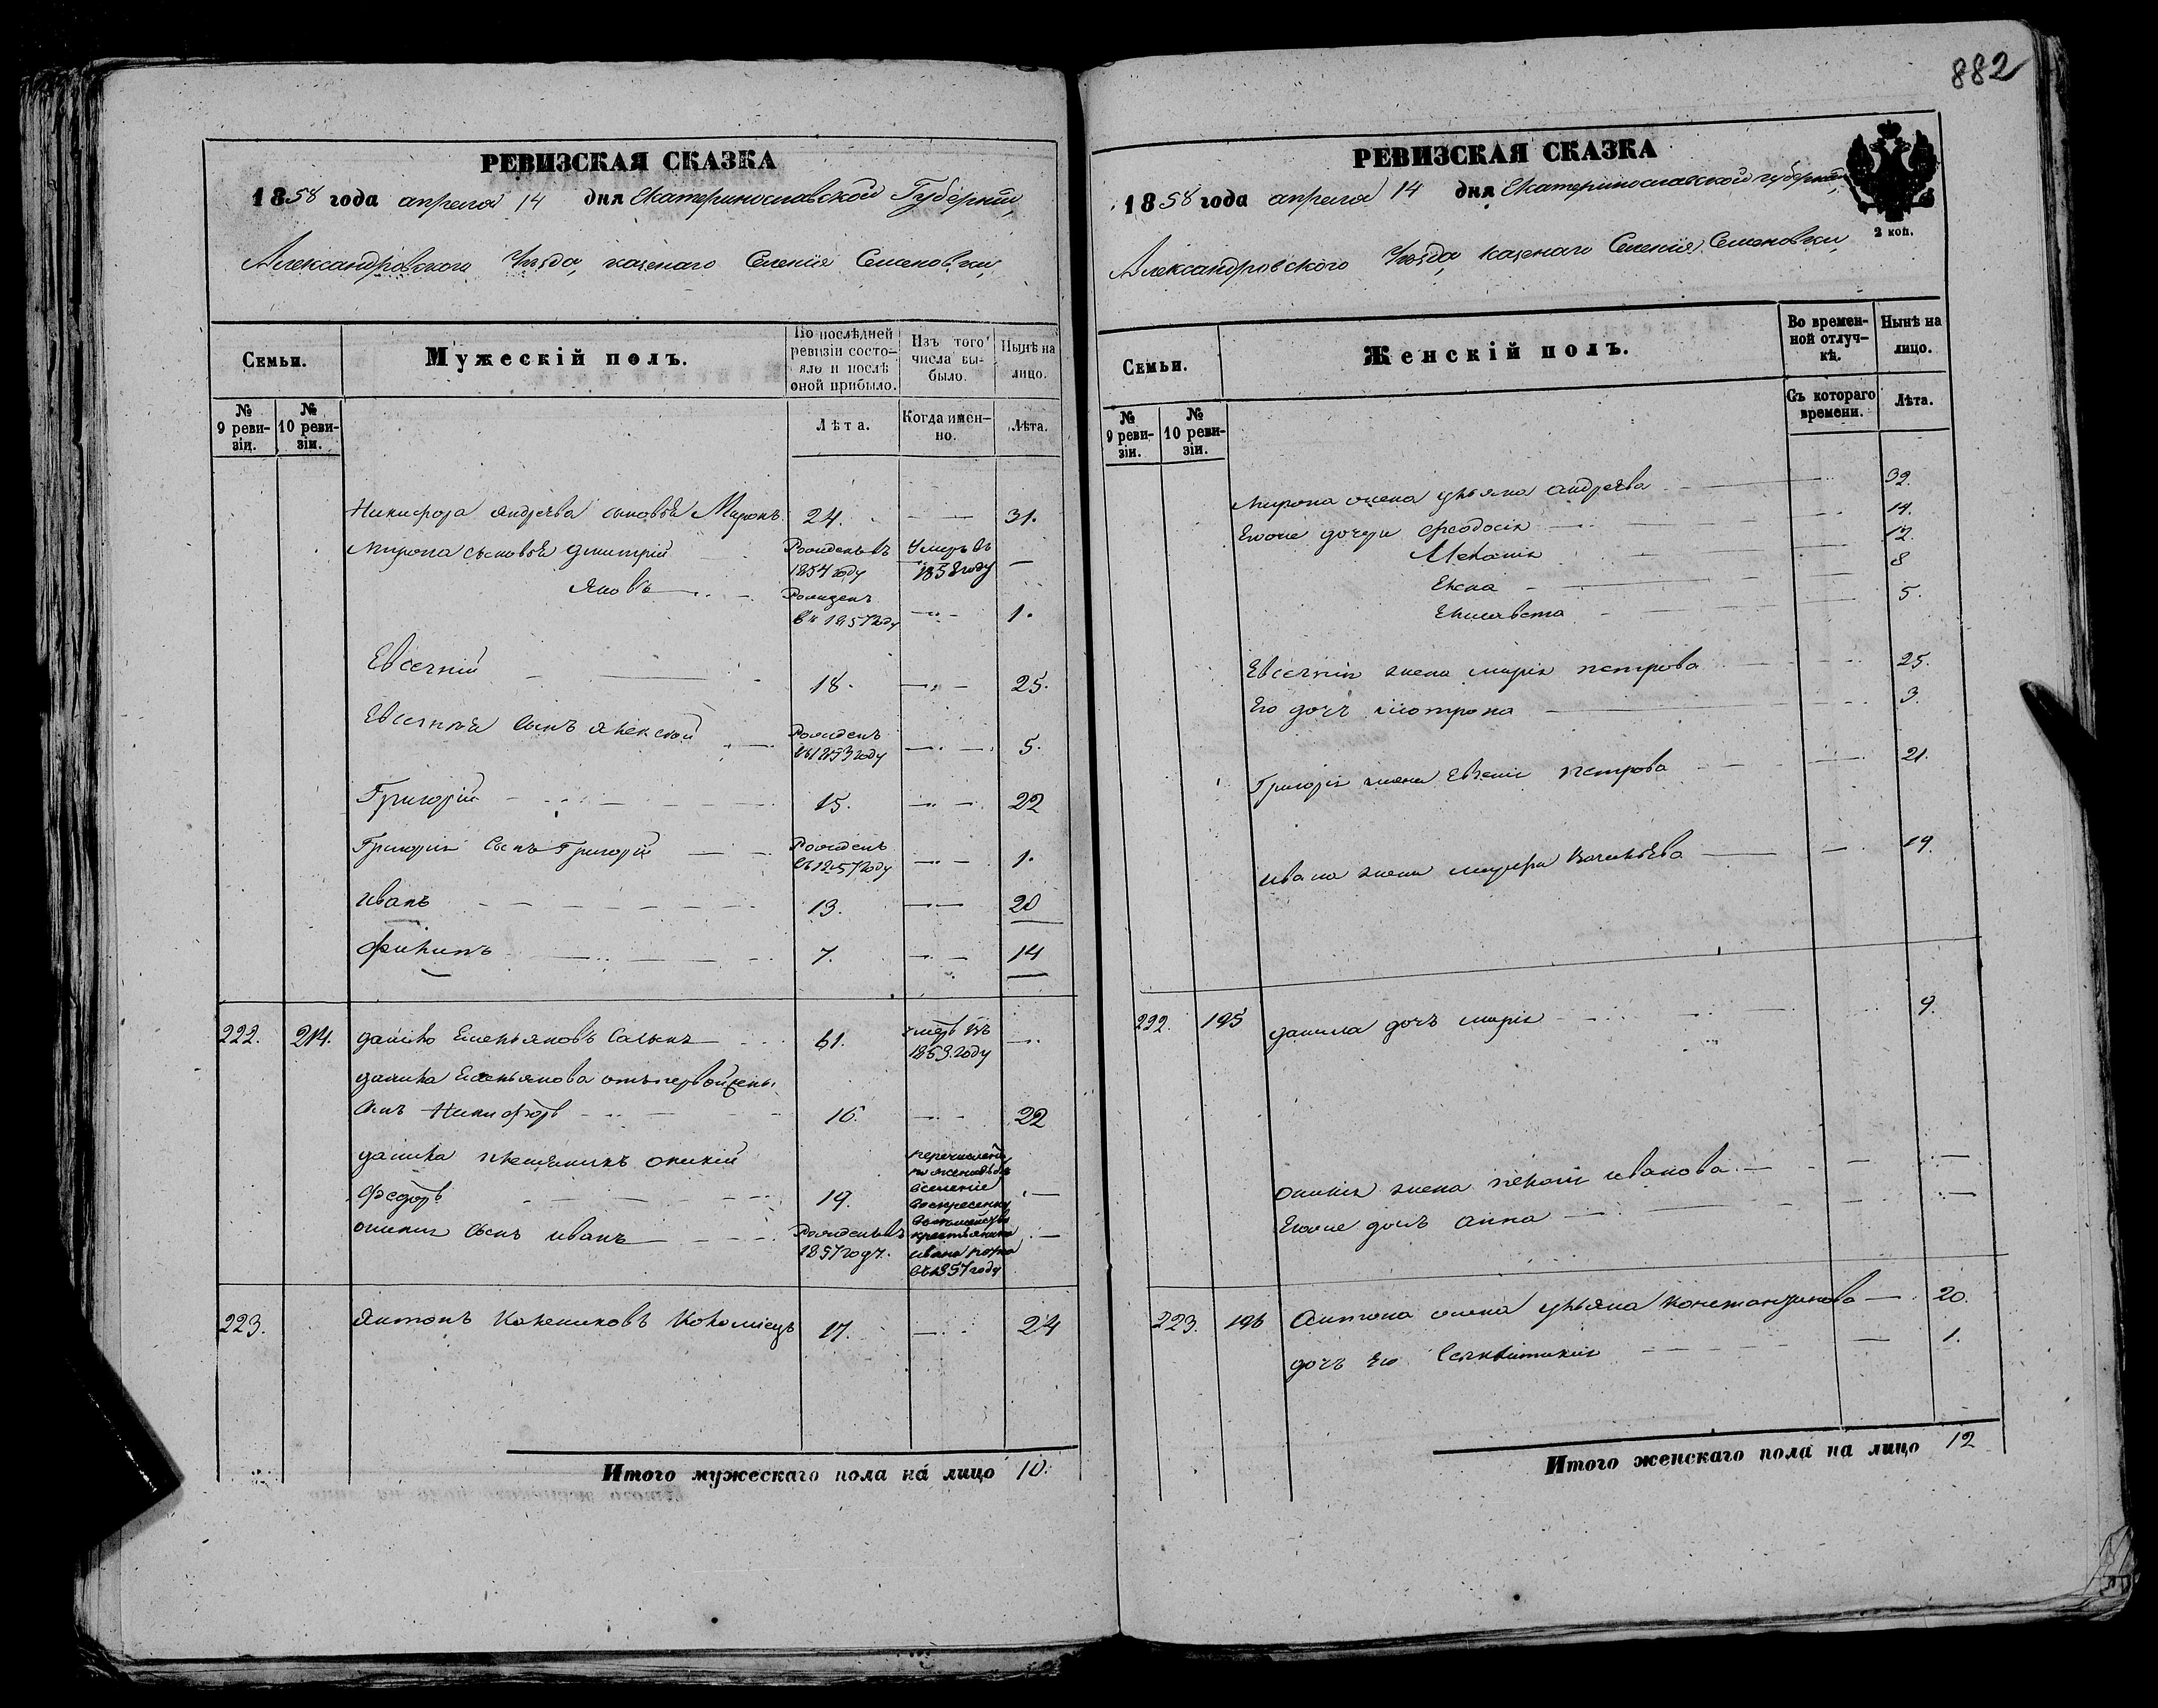 РЕВИЗСКАЯ СКАЗКА
1858 года апреля 14 дня Екатеринославской Губерніи,
Александровского Уѣзда, казенаго Селенія Семеновки,
Семьи.
Мужескій полъ.
По послѣдней ревизіи состояло и послѣ оной прибыло.
Изъ того числа выбыло.
Нынѣ на лицо.
№ 9 ревизіи.
№ 10 ревизіи.
Лѣта.
Когда именно.
Лѣта.
Никифора Андрѣева сыновья Миронъ 24. 31.
Мирона сыновья Дмитрій Рожденъ въ 1854 году Умеръ въ 1858 году
Яковъ Рожденъ въ 1857 году 1.
Евсегній 18. 25.
Евсегнія Сынъ Алексѣй Рожденъ въ 1853 году 5.
Григорій 15. 22
Григорія Сынъ Григорій Рожденъ въ 1857 году 1.
Иванъ 13. 20
Филипъ 7. 14
222. 214. Данило Емельяновъ 61. умеръ въ 1853 году
Данила Емельянова отъ первой жены
сынъ Никифоръ 16. 22
Данила племяникъ
Федоръ 19.
сынъ Иванъ Рожденъ въ 1857 году.
перечисленъ
въ селеніе
крестьянина
Ивана
въ 1857 году
223. Антонъ Калениковъ Коломіецъ 17. 24
Итого мужескаго пола на лицо 10.
882
РЕВИЗСКАЯ СКАЗКА
1858 года апреля 14 дня Екатеринославской губерніи,
2 коп.
Александровского Уѣзда, казенаго Селенія Семеновки,
Семьи.
Женскій полъ.
Во временной отлучкѣ.
Нынѣ на лицо.
№ 9 ревизіи.
№ 10 ревизіи.
Съ котораго времени.
Лѣта.
Мирона жена Ульяна Андрѣева 32.
Егоже дочери Феодосія 14.
Меланія 12.
Елена 8
Елисавета 5.
Евсегнія жена Марія Петрова 25.
Его дочъ Мотрона 3.
Григорія жена Евгенія Петрова 21.
Ивана жена Васильѣва 19.
222. 195 Данила дочъ Марія 9.
жена Пелагія Иванова
Егоже дочъ Анна
223. 196 Антона жена Ульяна Константинова 20.
дочъ его 1.
Итого женскаго пола на лицо 12